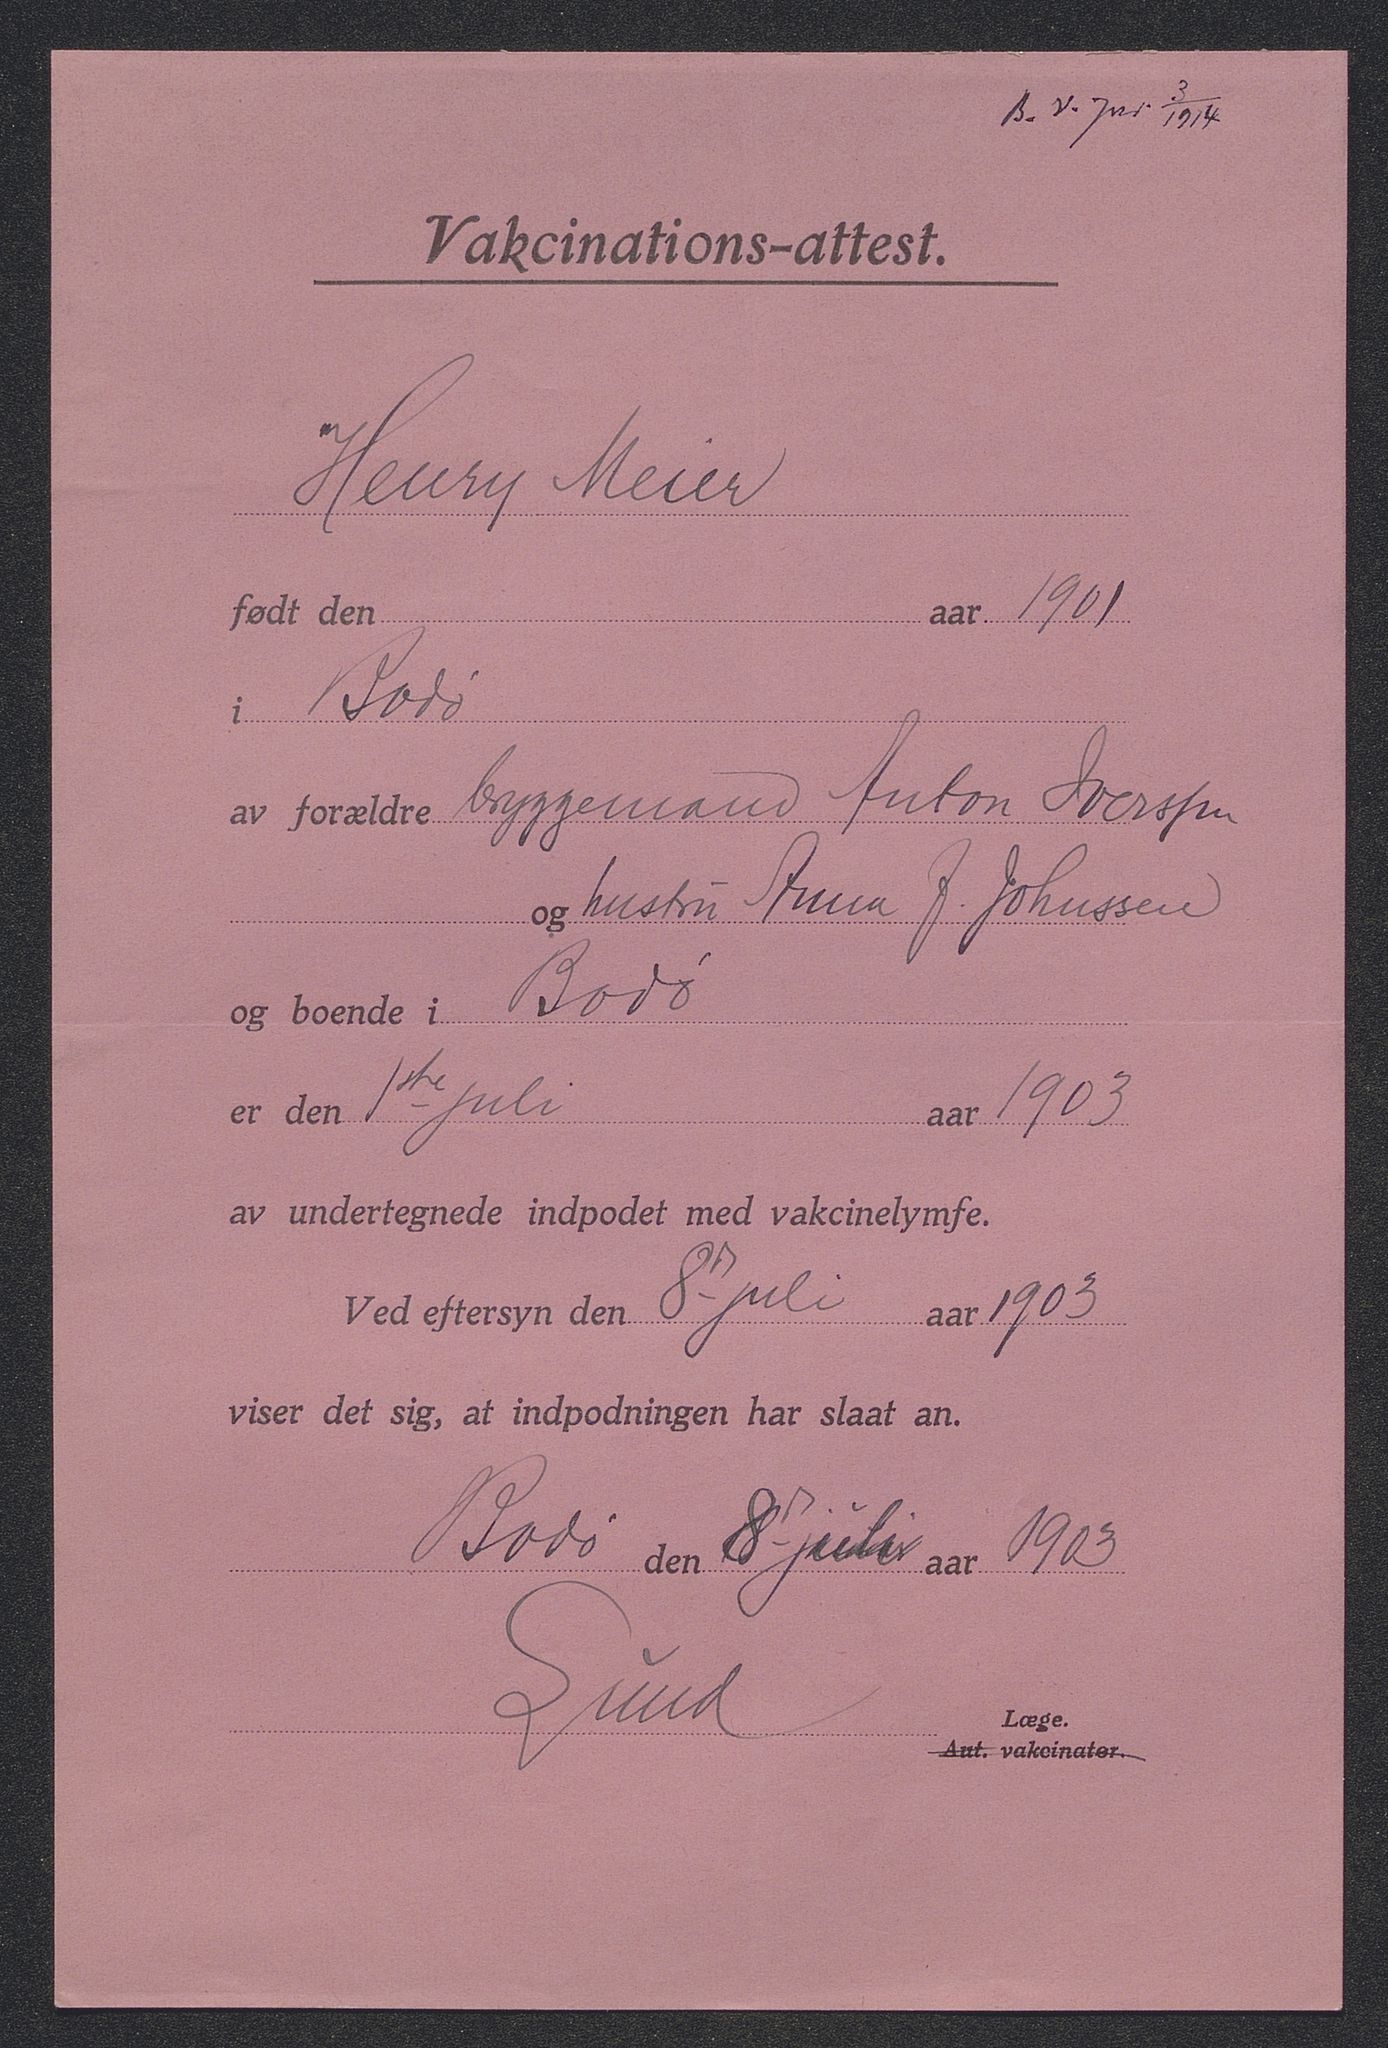 B. V. Jnr 3/1914
Vakcinations-attest.
Henry Meier
født den aar 1901
i Bodø
av forældre bryggemand Anton Iversen
og hustru Anna J. Johnssen
og boende i Bodø
er den 1ste juli aar 1903
av undertegnede indpodet med vakcinelymfe.
Ved eftersyn den 8d juli aar 1903
viser det sig, at indpodningen har slaat an.
Bodø den 8d juli aar 1903
Lund
Læge.
Aut. vakcinatør.